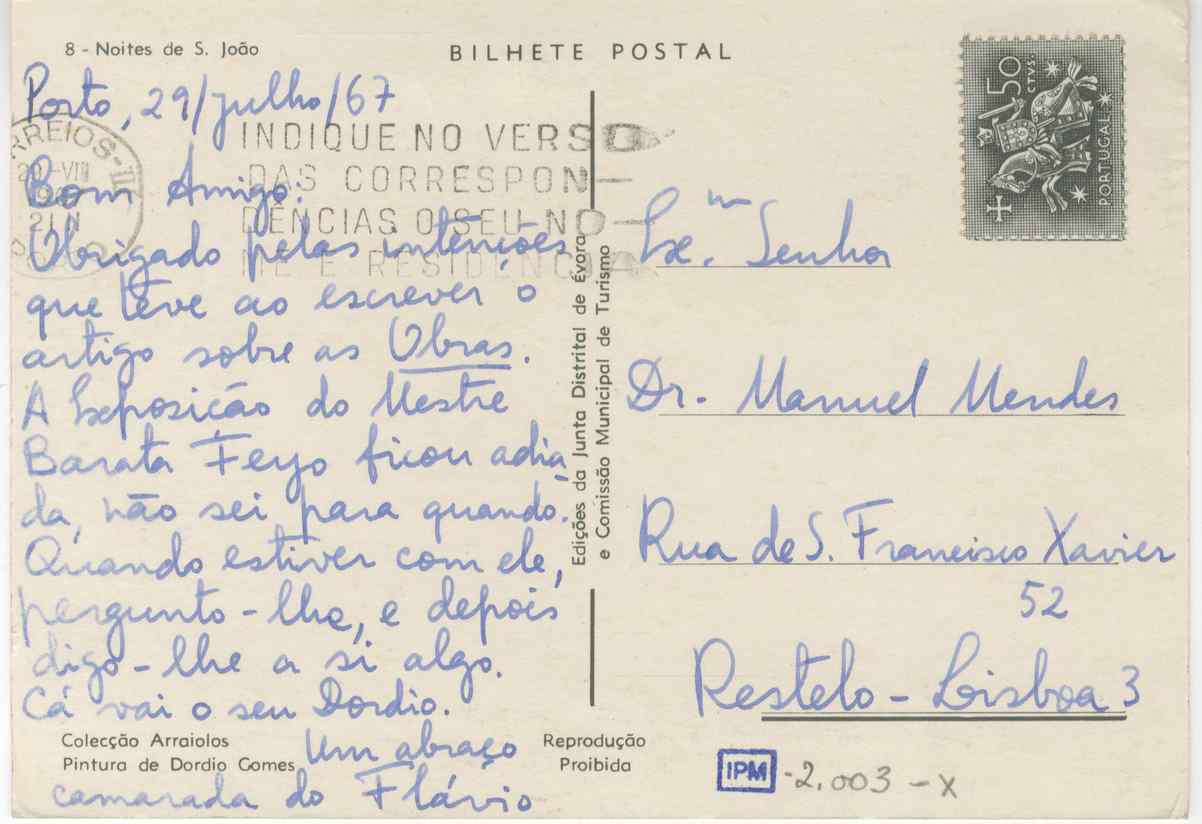 8 - Noites de S. João
BILHETE POSTAL
Porto, 29/julho/67
Bom Amigo:
Obrigado pelas intenções
que teve ao escrever o
artigo sobre as Obras.
A Exposição do Mestre
Barata Feyo ficou adia-
da, não sei para quando.
Quando estiver com ele,
pergunto-lhe, e depois
digo-lhe a si algo.
Cá vai o seu Dordio.
Um abraço
camarada do Flávio
Colecção Arraiolos
Pintura de Dordio Gomes
Reprodução
Proibida
RREIOS-III
VIII
21 N
INDIQUE NO VERSO
DAS CORRESPON-
DENCIAS O SEU NO-
ME E RESIDENCIA
Edições da Junta Distrital de Évora
e Comissão Municipal de Turismo
50
CTVS.
PORTUGAL
Exᵐ. Senhor
Dr. Manuel Mendes
Rua de S. Francisco Xavier
52
Restelo - Lisboa 3
IPM -2.003-X